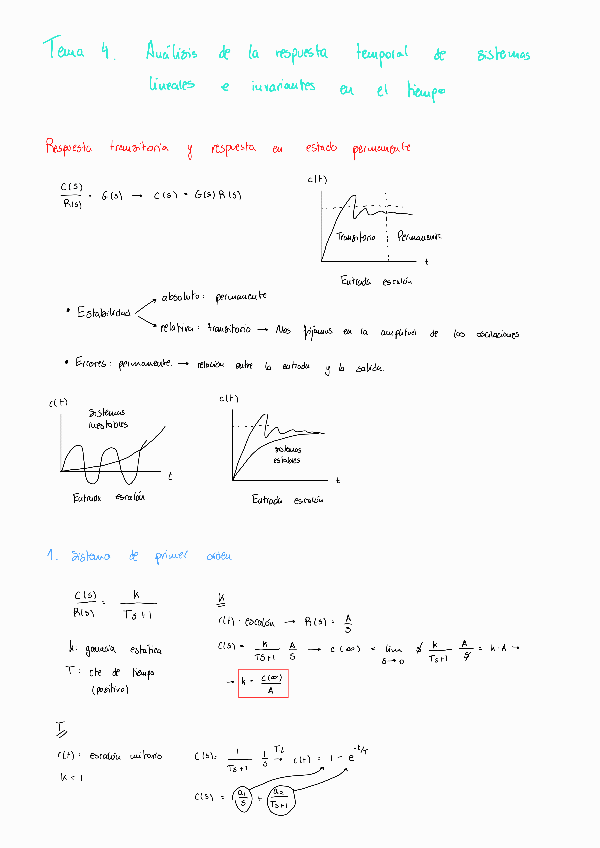 Tema 4. Análisis de la respuesta temporal de sistemas
lineales e invariantes en el tiempo
Respuesta transitoria y respuesta en estado permanente
C(s)/R(s) = G(s) → C(s) = G(s) R(s)
c(t)
Transitorio Permanente
t
Entrada escalón
• Estabilidad
absoluta: permanente
relativa: transitorio → Nos fijamos en la amplitud de las oscilaciones
• Errores: permanente → relación entre la entrada y la salida.
c(t)
sistemas
inestables
t
Entrada escalón
c(t)
sistemas
estables
t
Entrada escalón
1. Sistema de primer orden
C(s)/R(s) = k/(Ts+1)
k: ganancia estática
T: cte de tiempo
(positiva)
k
r(t): escalón → R(s) = A/s
C(s) = k/(Ts+1) A/s → c(∞) = lim s→0 s k/(Ts+1) A/s = k·A →
→ k = c(∞)/A
T
r(t): escalón unitario
k = 1
C(s) = 1/(Ts+1) 1/s → c(t) = 1 - e^-t/T
C(s) = a1/s + a2/(Ts+1)